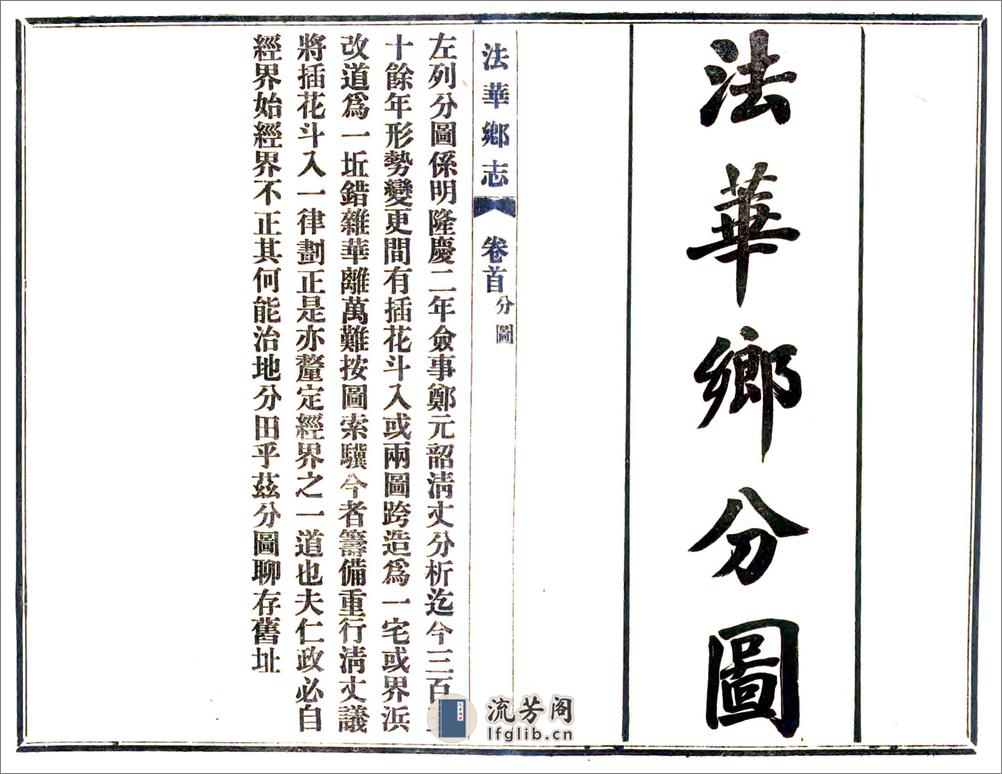 法華鄉分圖
法華鄉志 卷首 分圖
左列分圖係明隆慶二年僉事鄭元韶清丈分析迄今三百
十餘年形勢變更間有插花斗入或兩圖跨造爲一宅或界浜
改道爲一坵錯雜華離萬難按圖索驥今者籌備重行清丈議
將插花斗入一律劃正是亦釐定經界之一道也夫仁政必自
經界始經界不正其何能治地分田乎茲分圖聊存舊址
流芳阁
lfglib.cn